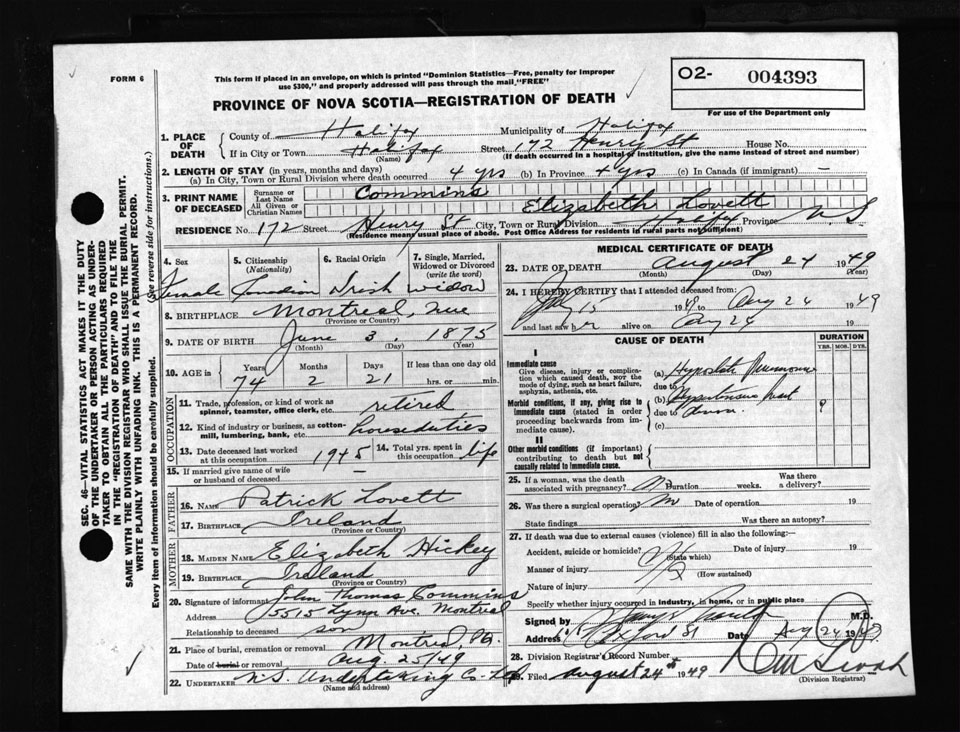 FORM 6
This form if placed in an envelope, on which is printed "Dominion Statistics—Free, penalty for improper
use $300," and properly addressed will pass through the mail "FREE"
O2- 004393
For use of the Department only
PROVINCE OF NOVA SCOTIA—REGISTRATION OF DEATH
1. PLACE OF DEATH
County of Halifax Municipality of Halifax
If in City or Town Halifax Street 172 Henry St House No.
(Name) (If death occurred in a hospital or institution, give the name instead of street and number)
2. LENGTH OF STAY (in years, months and days)
(a) In City, Town or Rural Division where death occurred 4 yrs (b) In Province 4 yrs (c) In Canada (if immigrant) —
3. PRINT NAME OF DECEASED
Surname or Last Name Commins
All Given or Christian Names Elizabeth Lovett
RESIDENCE No. 172 Street Henry St City, Town or Rural Division Halifax Province N S
(Residence means usual place of abode. Post Office Address for residents in rural parts not sufficient)
4. Sex 5. Citizenship (Nationality) 6. Racial Origin 7. Single, Married, Widowed or Divorced (write the word)
Female Canadian Irish widow
8. BIRTHPLACE Montreal, Que
(Province or Country)
9. DATE OF BIRTH June 3, 1875
(Month) (Day) (Year)
10. AGE in Years Months Days If less than one day
74 2 21 hrs. or min.
OCCUPATION
11. Trade, profession, or kind of work as spinner, teamster, office clerk, etc. retired
12. Kind of industry or business, as cotton-mill, lumbering, bank, etc. houseduties
13. Date deceased last worked at this occupation 1945 14. Total yrs. spent in this occupation life
15. If married give name of wife or husband of deceased —
FATHER
16. NAME Patrick Lovett
17. BIRTHPLACE Ireland
(Province or Country)
MOTHER
18. MAIDEN NAME Elizabeth Hickey
19. BIRTHPLACE Ireland
(Province or Country)
20. Signature of informant John Thomas Commins
Address 5515 Lynn Ave. Montreal
Relationship to deceased son
21. Place of burial, cremation or removal Montreal, P.Q.
Date of burial or removal Aug. 25/49
22. UNDERTAKER N.S. Undertaking Co. Ltd
(Name and address)
MEDICAL CERTIFICATE OF DEATH
23. DATE OF DEATH August 24 1949
(Month) (Day) (Year)
24. I HEREBY CERTIFY that I attended deceased from:
15 1949 to Aug 24 1949
and last saw her alive on Aug 24 19
CAUSE OF DEATH DURATION
YRS. MOS. DYS.
I
Immediate cause
Give disease, injury or complication which caused death, not the mode of dying, such as heart failure, asphyxia, asthenia, etc.
(a) Hypostatic Pneumonia
due to
Morbid conditions, if any, giving rise to immediate cause (stated in order proceeding backwards from immediate cause).
(b) Hypertensive heart
due to
(c)
II
Other morbid conditions (if important) contributing to death but not causally related to immediate cause.
25. If a woman, was the death associated with pregnancy? No Duration weeks. Was there a delivery?
26. Was there a surgical operation? No Date of operation 19
State findings Was there an autopsy?
27. If death was due to external causes (violence) fill in also the following:
Accident, suicide or homicide? (State which) Date of injury 19
Manner of injury (How sustained)
Nature of injury
Specify whether injury occurred in industry, in home, or in public place
Signed by M.D.
Address Oxford St Date Aug 24 19
28. Division Registrar's Record Number
29. Filed August 24th 1949
(Division Registrar)
SEC. 46—VITAL STATISTICS ACT MAKES IT THE DUTY
OF THE UNDERTAKER OR PERSON ACTING AS UNDER-
TAKER TO OBTAIN ALL THE PARTICULARS REQUIRED
IN THE "REGISTRATION OF DEATH" AND TO FILE THE
SAME WITH THE DIVISION REGISTRAR WHO SHALL ISSUE THE BURIAL PERMIT.
WRITE PLAINLY WITH UNFADING INK. THIS IS A PERMANENT RECORD.
Every item of information should be carefully supplied. (See reverse side for instructions.)